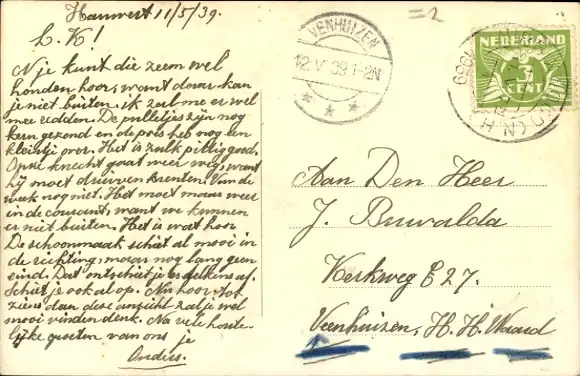 Hauwert 11/5/39.
L. K!
N je kunt die zeem wel
houden hoor, want daar kan
je niet buiten. ik zal me er wel
mee redden. De pulletjes zijn nog
kern gezond en de poes heb nog een
kleintje over. Het is zulk pittig goed.
Onze knecht gaat weer weg, want
hij moet druiven krenten. Van de
week nog niet. Het moet maar weer
in de courant, want we kunnen
er niet buiten. Het is wat hoor.
De schoonmaak schiet al mooi in
de richting, maar nog lang geen
eind. Dat ontschiet je telkens af.
Schiet je ook al op. Nu hoor, tot
ziens dan deze ansicht zal je wel
mooi vinden denk. Na vele harte-
lijke groeten van ons je
Ouders.
VENHUIZEN
12 V 39 1-2N
=2
NEDERLAND
3
CENT
Aan Den Heer
J. Buwalda
Kerkweg E 27.
Veenhuizen, H. H. Waard